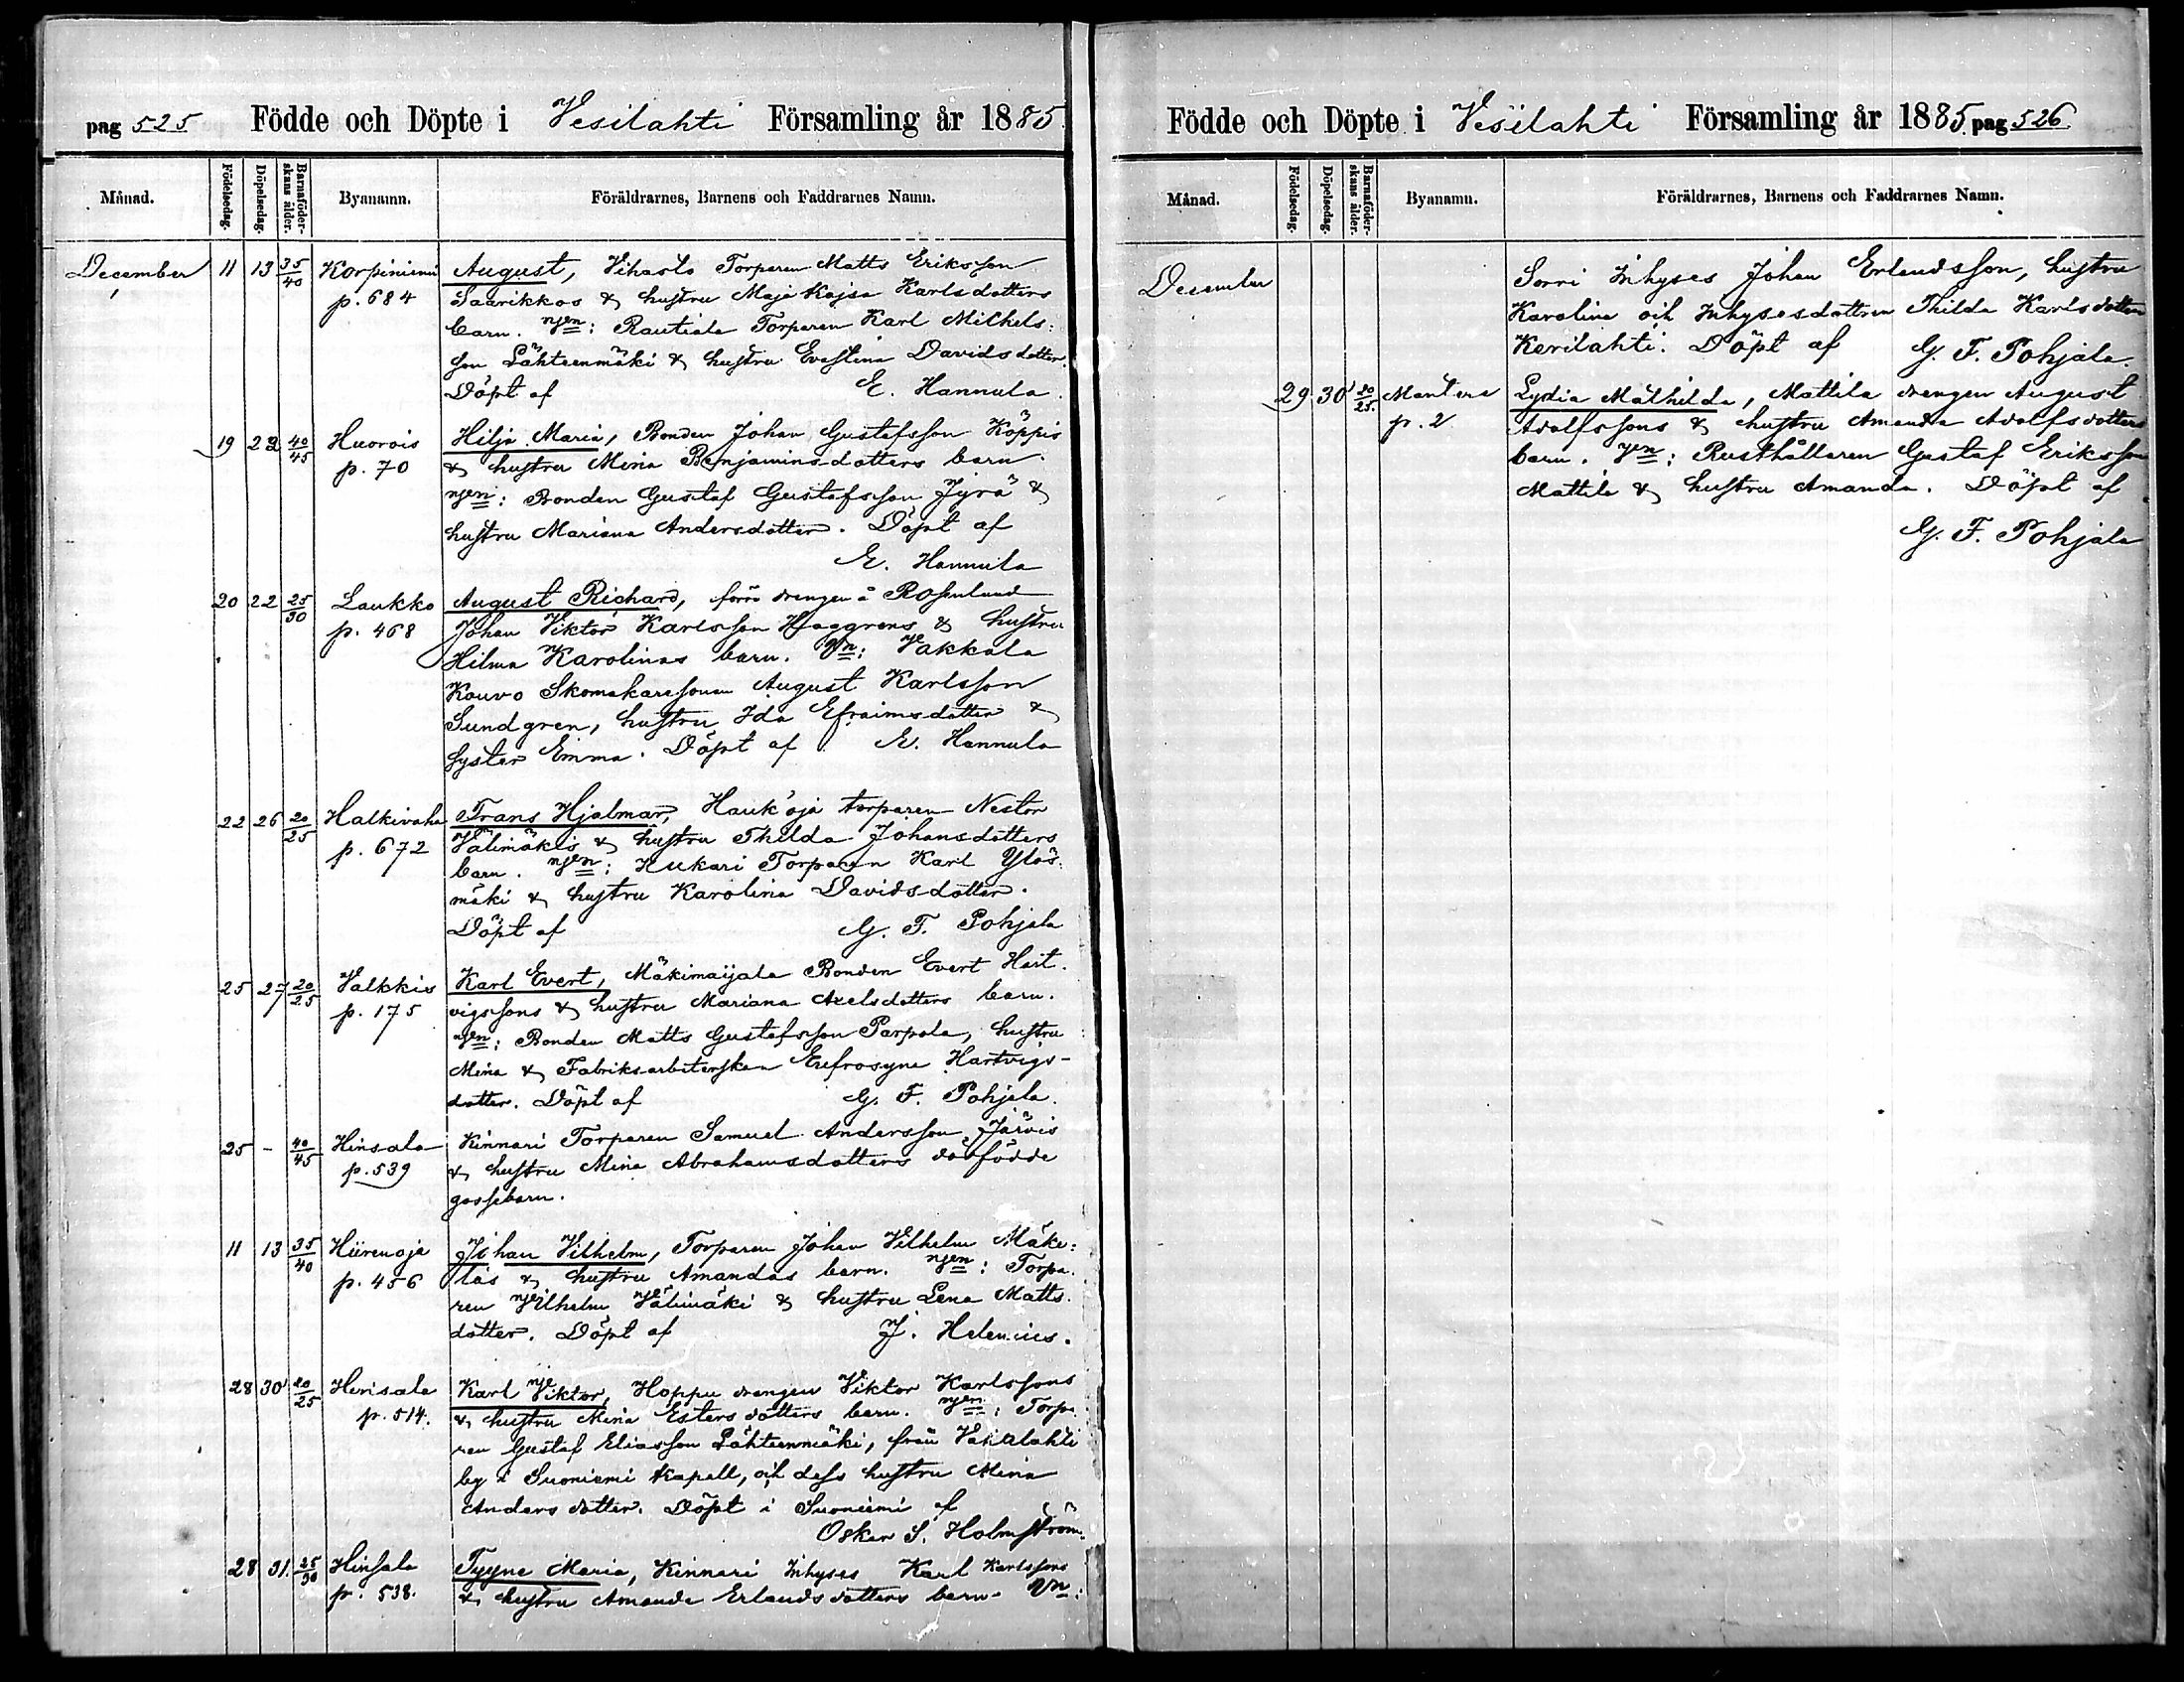 pag 525 Födde och Döpte i Vesilahti Församling år 1885.
Månad. Födelsedag. Döpelsedag. Barnaföderskans ålder. Byanamn. Föräldrarnes, Barnens och Faddrarnes Namn.
December 11 13 35/40 Korpiniemi August, Vihasto Torparen Matts Eriksson
p. 684 Saarikkos & hustru Maja Kajsa Karlsdotters
barn. Vn: Rautiala Torparen Karl Michels:
son Lähteenmäki & hustru Evastina Davidsdotter.
Döpt af E. Hannula.
19 22 40/45 Huorois Hilja Maria, Bonden Johan Gustafsson Köppis
p. 70 & hustru Mina Benjaminsdotters barn.
Vn: Bonden Gustaf Gustafsson Jyrä &
hustru Mariana Andersdotter. Döpt af
E. Hannula
20 22 25/30 Laukko August Richard, förre drengen å Rosenlund
p. 468 Johan Viktor Karlsson Haggrens & hustru
Hilma Karolinas barn. Vn: Vakkala
Kouvo Skomakaresonen August Karlsson
Sundgren, hustru Ida Efraimsdotter &
syster Emma. Döpt af E. Hannula
22 26 20/25 Halkivaha Frans Hjalmar, Hauk'oja torparen Nestor
p. 672 Välimäkis & hustru Thilda Johansdotters
barn. Vn: Kukari Torparen Karl Ylös:
mäki & hustru Karolina Davidsdotter.
Döpt af G. F. Pohjala
25 27 20/25 Valkkis Karl Evert, Mäkimaijala Bonden Evert Hart.
p. 175 vigssons & hustru Mariana Axelsdotters barn.
Vn: Bonden Matts Gustafsson Parpola, hustru
Mina & Fabriksarbeterskan Eufrosyne Hartvigs-
dotter. Döpt af G. F. Pohjala.
25 - 40/45 Hinsala Kinnari Torparen Samuel Andersson Järvis
p. 539 & hustru Mina Abrahamsdotters dödfödde
gossebarn.
11 13 35/40 Hiirenoja Johan Vilhelm, Torparen Johan Vilhelm Mäke:
p. 456 läs & hustru Amandas barn. Vn: Torpa.
ren Vilhelm Välimäki & hustru Lena Matts.
dotter. Döpt af J. Helenius.
28 30 20/25 Hinsala Karl Viktor, Hoppu drengen Viktor Karlssons
p. 514. & hustru Mina Estersdotters barn. Vn: Torpa.
ren Gustaf Eliasson Lähteenmäki, från Vahalahti
by i Suoniemi Kapell, och dess hustru Mina
Andersdotter. Döpt i Suoniemi af
Oskar S. Holmström.
28 31. 25/30 Hinsala Tyyne Maria, Kinnari Inhyses Karl Karlssons
p. 538. & hustru Amanda Erlandsdotters barn. Vn:
Födde och Döpte i Vesilahti Församling år 1885. pag 526
Månad. Födelsedag. Döpelsedag. Barnaföderskans ålder. Byanamn. Föräldrarnes, Barnens och Faddrarnes Namn.
December Sorri Inhyses Johan Erlandsson, hustru
Karolina och Inhysesdottren Thilda Karlsdotter
Kerilahti. Döpt af G. F. Pohjala.
29 30 20/25. Mantere Lydia Mathilda, Mattila drengen August
p. 2 Adolfssons & hustru Amanda Adolfsdotters
barn. Vn: Rusthållaren Gustaf Eriksson
Mattila & hustru Amanda. Döpt af
G. F. Pohjala